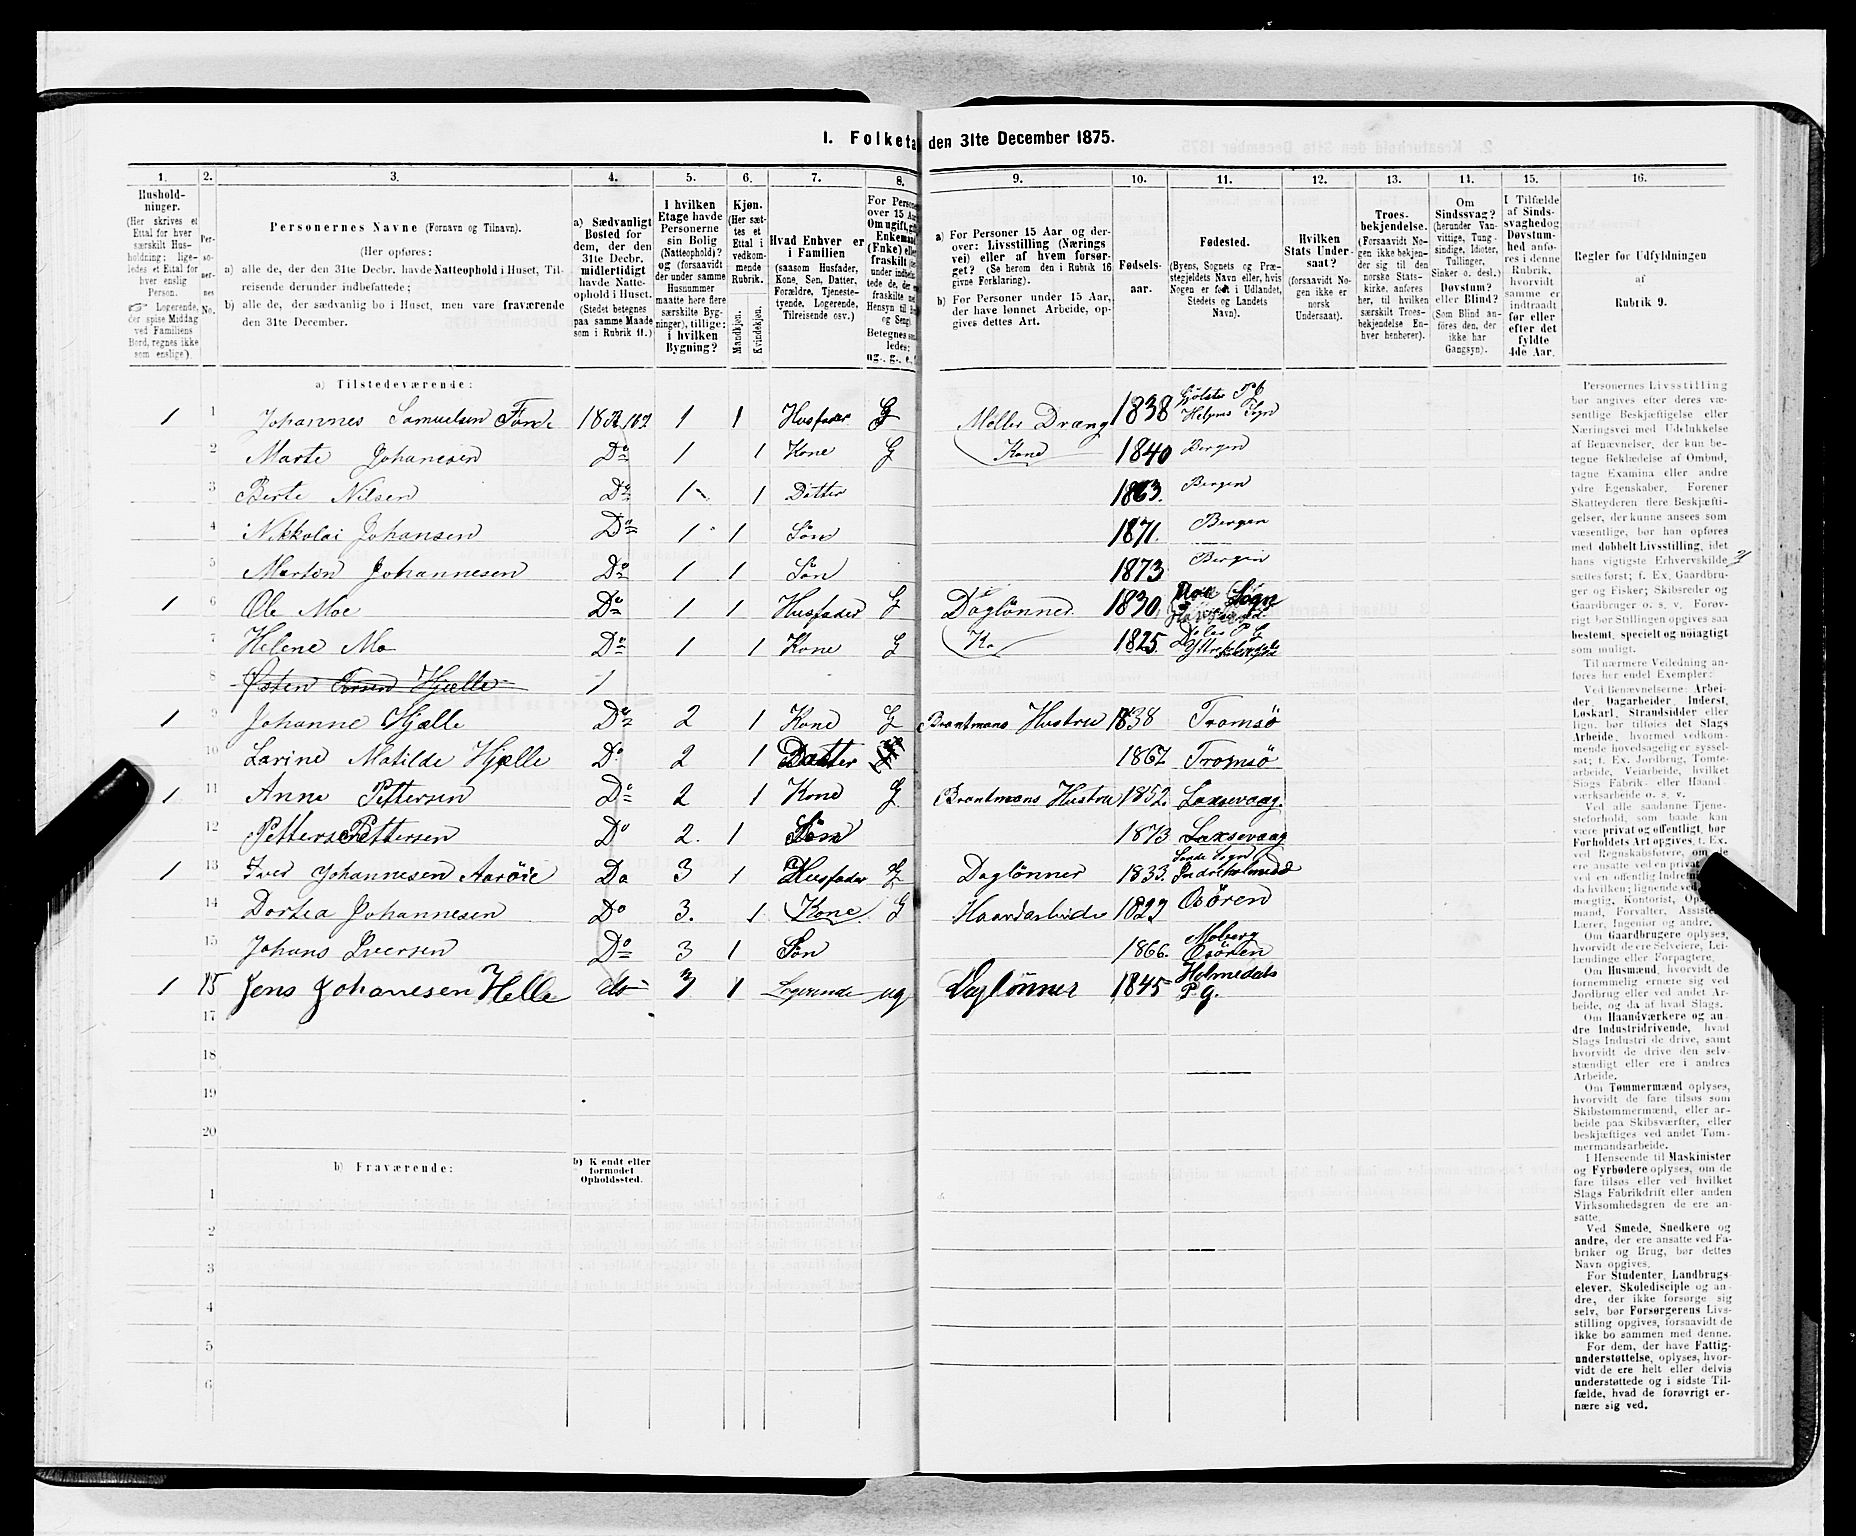 1. Folketa den 31te December 1875.
1. 2. 3. 4. 5. 6. 7. 8. 9. 10. 11. 12. 13. 14. 15. 16.
Hushold-
ninger.
(Her skrives et
Ettal for hver
særskilt Hus-
holdning; lige-
ledes et Ettal for
hver enslig
Person.
Logerende,
der spise Middag
ved Familiens
Bord, regnes ikke
som enslige).
Per-
so-
ner-
nes
No.
Personernes Navne (Fornavn og Tilnavn).
(Her opføres:
a) alle de, der den 31te Decbr. havde Natteophold i Huset, Til-
reisende derunder indbefattede;
b) alle de, der sædvanlig bo i Huset, men vare fraværende
den 31te December.
a) Sædvanligt
Bosted for
dem, der den
31te Decbr.
midlertidigt
havde Natte-
ophold i Huset.
(Stedet betegnes
paa samme Maade
som i Rubrik 11.)
I hvilken
Etage havde
Personerne
sin Bolig
(Natteophold)?
og (forsaavidt
der under samme
Husnummer
maatte høre flere
særskilte Byg-
ninger), tillige:
i hvilken
Bygning?
Kjøn.
(Her sæt-
tes et
Ettal i
vedkom-
mende
Rubrik.
Mandkjøn.
Kvindekjøn.
Hvad Enhver er
i Familien
(saasom Husfader,
Kone, Søn, Datter,
Forældre, Tjeneste-
tyende, Logerende,
Tilreisende osv.)
For Persone
over 15 Aar
Om ugift, gift
Enkemand
(Enke) eller
fraskilt
a) For Personer 15 Aar og der-
over: Livsstilling (Nærings
vei) eller af hvem forsør-
get? (Se herom den i Rubrik 16
givne Forklaring).
b) For Personer under 15 Aar,
der have lønnet Arbeide, op-
gives dettes Art.
Fødsels-
aar.
Fødested.
(Byens, Sognets og Præ-
stegjeldets Navn eller, hvis
Nogen er født i Udlandet,
Stedets og Landets
Navn).
Hvilken
Stats Under-
saat?
(forsaavidt No-
gen ikke er
norsk
Undersaat).
Troes-
bekjendelse.
(Forsaavidt No-
gen ikke bekjen-
der sig til den
norske Stats-
kirke, anføres
her, til hvilken
særskilt Troes-
bekjendelse En-
hver henhører).
Om
Sindssvag?
(herunder Van-
vittige, Tung-
sindige, Idioter,
Tullinger,
Sinker o. desl.)
Døvstum?
eller Blind?
(Som Blind an-
føres den, der
ikke har
Gangsyn).
I Tilfælde
af Sinds-
svaghedog
Døvstum-
hed anfø-
res i denne
Rubrik,
hvorvidt
samme er
indtraadt
før eller
efter det
fyldte
4de Aar.
Regler for Udfyldningen
af
Rubrik 9.
a) Tilstedeværende:
1 1 Johannes Samuelsen 1 1 Husfader G Møller Dræng 1838
2 Marte Johanesen Do 1 1 Kone G Kone 1840 Bergen
3 Berte Nilsen Do 1 1 Datter 1863. Bergen
4 Nikkolai Johansen Do 1 1 Søn 1871. Bergen
5 Martin Johannesen Do 1 1 Søn 1873 Bergen
1 6 Ole Moe Do 1 1 Husfader G Daglønner 1830
7 Helene Mo Do 1 1 Kone G Ko 1825.
8 Østen Hjelle 1
1 9 Johanne Hjælle Do 2 1 Kone G Brantmans Hustru 1838 Tromsø
10 Larine Matilde Hjelle Do 2 1 Datter 1867 Tromsø
1 11 Anne Pettersen Do 2 1 Kone G Brantmans Hustru 1852. Laxsevaag.
12 Petter Pettersen Do 2. 1 Søn 1873 Laxsevaag
1 13 Iver Johannesen Aarøie Do 3 1 Husfader G Daglønner 1833.
14 Dortea Johannesen Do 3. 1 Kone G Haandarbeide 1823 Osören
15 Johans Iversen Do 3 1 Søn 1866. Osören
1 15 Jens Johanesen Helle do 3 1 Logerende ug Daglønner 1845 Holmedals P. g.
17
18
19
20
b) Fraværende:
b) Kjendt eller
formodet
Opholdssted.
1
2
3
4
5
6
Personernes Livsstilling
bør angives efter deres væ-
sentlige Beskjæftigelse eller
Næringsvei med Udelukkelse
af Benævnelser, der kun be-
tegne Beklædelse af Ombud,
tagne Examina eller andre
ydre Egenskaber. Forener
Skatteyderen flere Beskjæfti-
gelser, der kunne ansees som
væsentlige, bør han opføres
med dobbelt Livsstilling, idet
hans vigtigste Erhvervskilde
sættes først; f. Ex. Gaardbru-
ger og Fisker; Skibsreder og
Gaardbruger o. s. v. Forøv-
rigt bør Stillingen opgives saa
bestemt, specielt og nøiagtigt
som muligt.
Til nærmere Veiledning an-
føres her endel Exempler:
Ved Benævnelserne: Arbei-
der, Dagarbeider, Inderst,
Løskarl, Strandsidder eller
lign. bør tilføies det Slags
Arbeide, hvormed vedkom-
mende hovedsagelig er syssel-
sat; f. Ex. Jordbrug, Tomte-
arbeide, Veiarbeide, hvilket
Slags Fabrik- eller Haand-
værksarbeide o. s. v.
Ved alle saadanne Tjene-
steforhold, som baade kan
være privat og offentligt, bør
Forholdets Art opgives, f. Ex.
Om Gaardbrugere oplyses,
hvorvidt de ere Selveiere, Lei-
lændinge eller Forpagtere.
Om Husmænd, hvorvidt de
fornemmelig ernære sig ved
Jordbrug eller ved andet Ar-
beide, og da af hvad Slags.
Om Haandværkere og an-
dre Industridrivende, hvad
Slags Industri de drive, samt
hvorvidt de drive den selv-
stændigt eller ere i andres
Arbeide.
Om Tømmermænd oplyses,
hvorvidt de fare tilsøs som
Skibstømmermænd, eller ar-
beide paa Skibsværfter, eller
beskjæftiges ved andet Tøm-
mermandsarbeide.
I Henseende til Maskinister
og Fyrbødere oplyses, om de
fare tilsøs eller ved hvilket
Slags Fabrikdrift eller anden
Virksomhedsgren de ere an-
satte.
Ved Smede, Snedkere og
andre, der ere ansatte ved Fa-
briker og Brug, bør dettes
Navn opgives.
For Studenter, Landbrugs-
elever, Skoledisciple og an-
dre, der ikke forsørge sig
selv, bør Forsørgerens Livs-
stilling opgives, forsaavidt de
ikke bo sammen med denne.
For dem, der have Fattig-
understøttelse, oplyses, hvor-
vidt de ere helt eller delvis
understøttede og i sidste Til-
fælde, hvad de forøvrigt er-
nære sig ved.